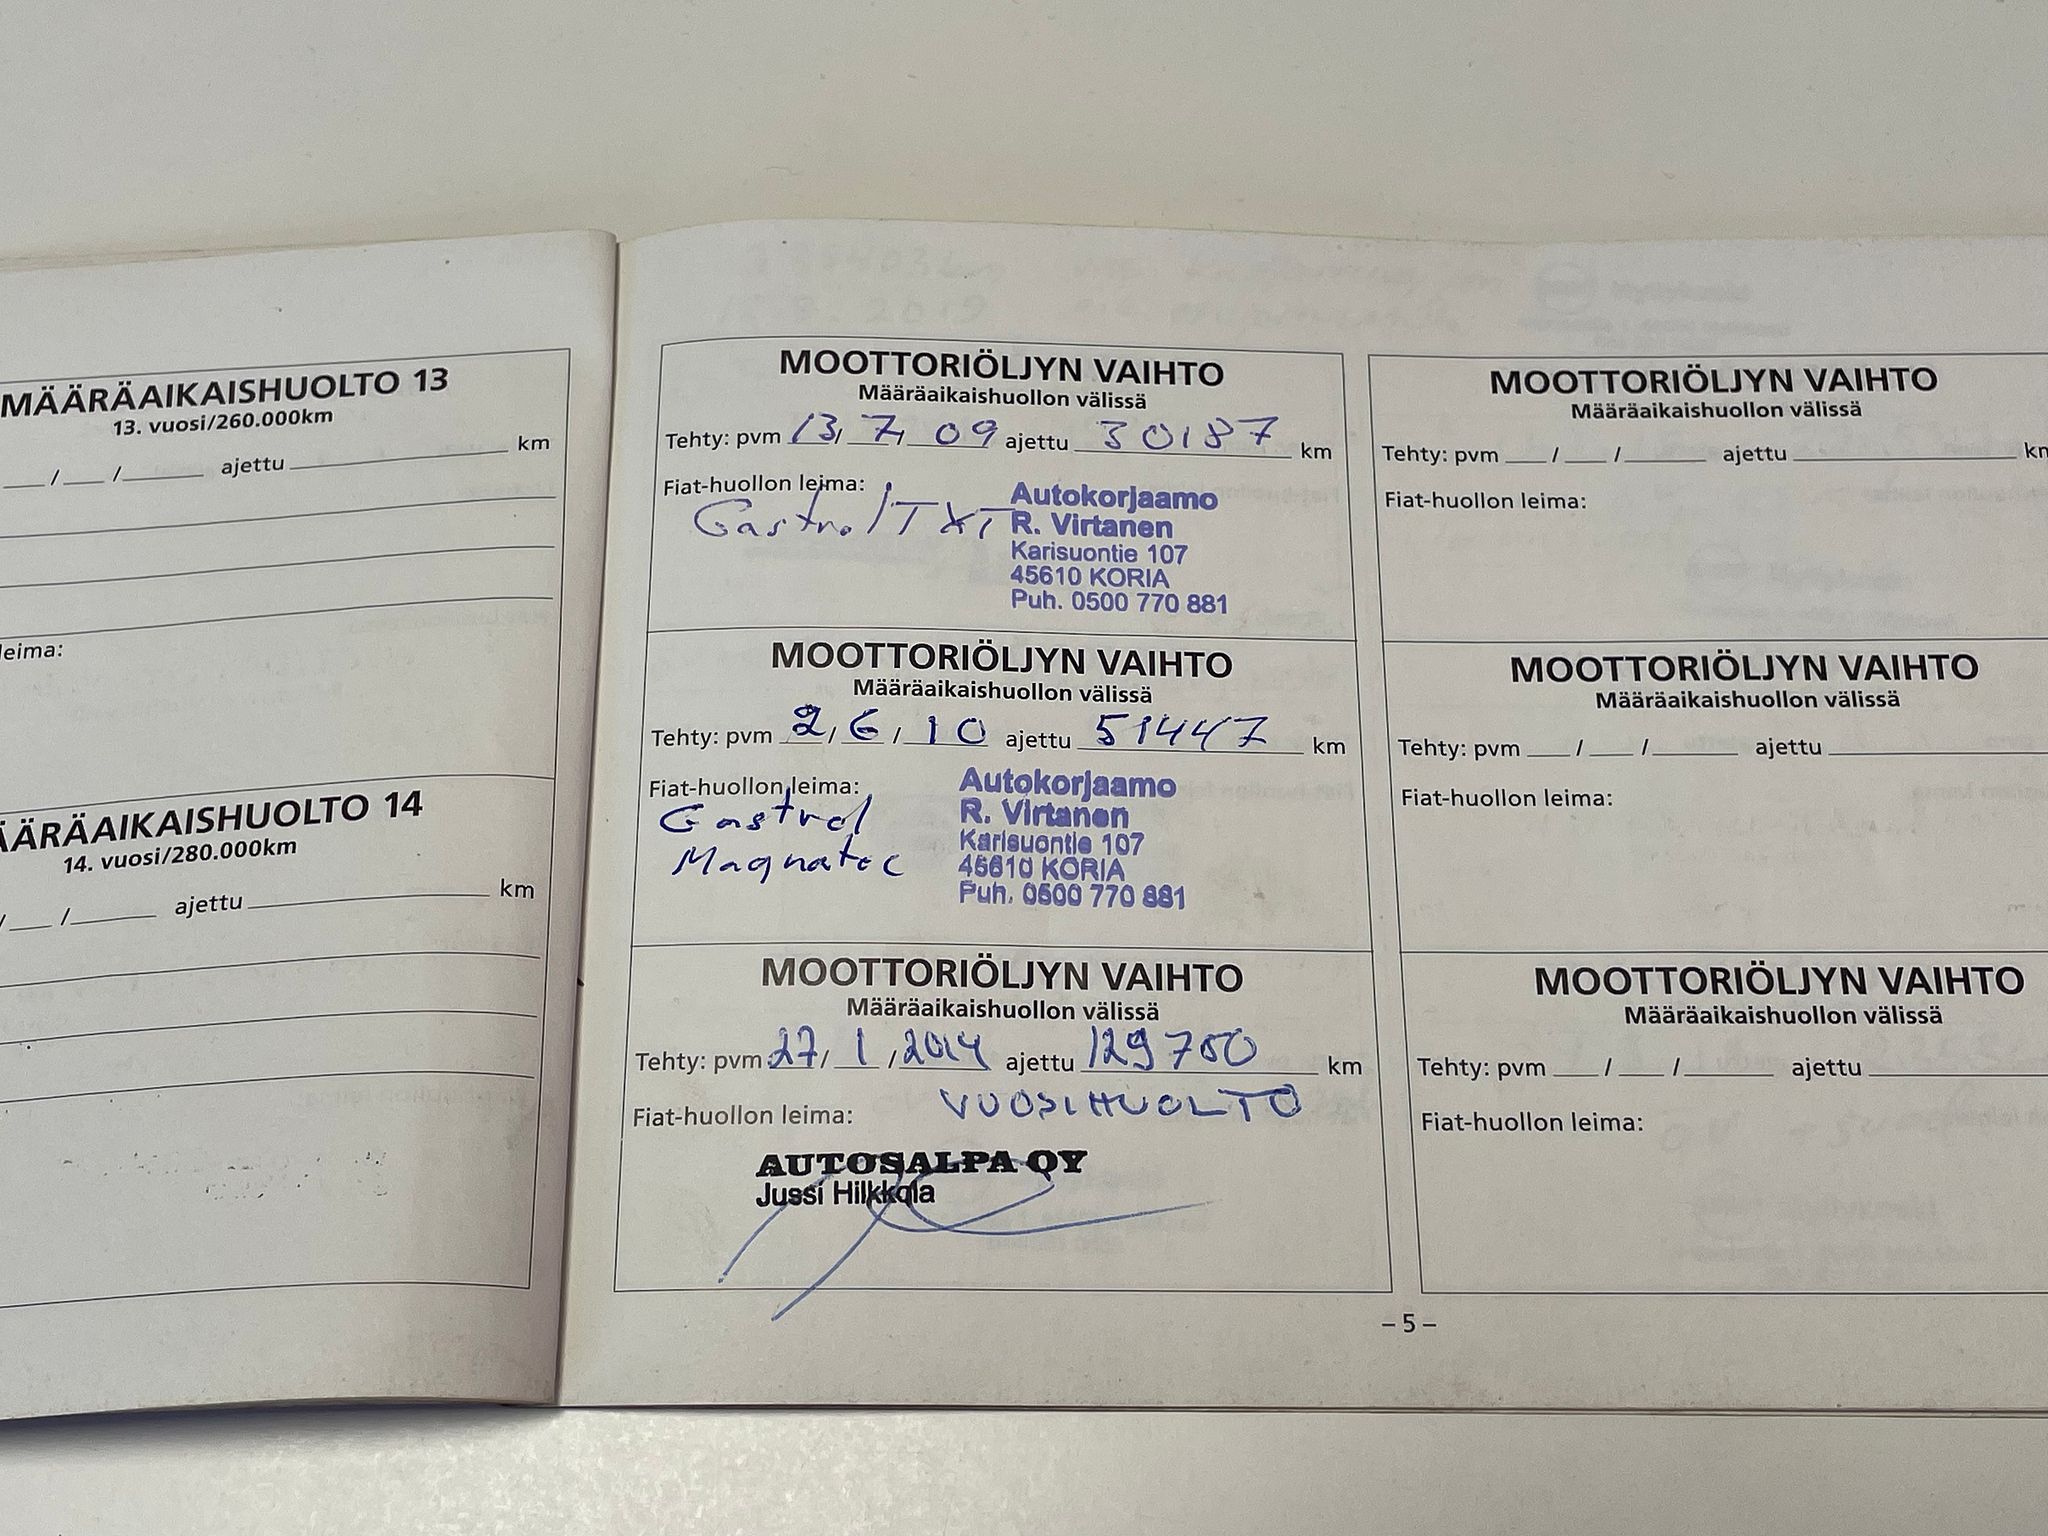 MÄÄRÄAIKAISHUOLTO 13
13. vuosi/260.000km
__/__/____ ajettu ____ km
leima:
ÄÄRÄAIKAISHUOLTO 14
14. vuosi/280.000km
/__/____ ajettu ____ km
MOOTTORIÖLJYN VAIHTO
Määräaikaishuollon välissä
Tehty: pvm 13/7/09 ajettu 30187 km
Fiat-huollon leima:
Castrol TXT
Autokorjaamo
R. Virtanen
Karisuontie 107
45610 KORIA
Puh. 0500 770 881
MOOTTORIÖLJYN VAIHTO
Määräaikaishuollon välissä
Tehty: pvm 2/6/10 ajettu 51447 km
Fiat-huollon leima:
Castrol
Magnatec
Autokorjaamo
R. Virtanen
Karisuontie 107
45610 KORIA
Puh. 0500 770 881
MOOTTORIÖLJYN VAIHTO
Määräaikaishuollon välissä
Tehty: pvm 27/1/2014 ajettu 129750 km
Fiat-huollon leima:
VUOSIHUOLTO
AUTOSALPA OY
Jussi Hilkkola
MOOTTORIÖLJYN VAIHTO
Määräaikaishuollon välissä
Tehty: pvm __/__/____ ajettu ____ km
Fiat-huollon leima:
MOOTTORIÖLJYN VAIHTO
Määräaikaishuollon välissä
Tehty: pvm __/__/____ ajettu ____
Fiat-huollon leima:
MOOTTORIÖLJYN VAIHTO
Määräaikaishuollon välissä
Tehty: pvm __/__/____ ajettu ____
Fiat-huollon leima:
– 5 –